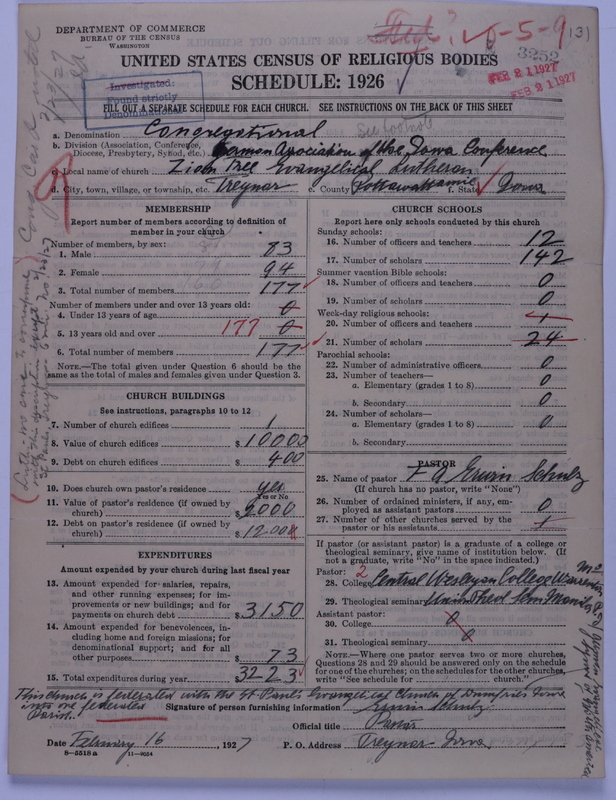 DEPARTMENT OF COMMERCE
BUREAU OF THE CENSUS
WASHINGTON
6-5-9 (3)
3252
FEB 21 1927
FEB 21 1927
UNITED STATES CENSUS OF RELIGIOUS BODIES
SCHEDULE: 1926
Investigated:
Found strictly
Denominational
FILL OUT A SEPARATE SCHEDULE FOR EACH CHURCH. SEE INSTRUCTIONS ON THE BACK OF THIS SHEET
a. Denomination Congregational
b. Division (Association, Conference, Diocese, Presbytery, Synod, etc.) German Association of the Iowa Conference
c. Local name of church Zion Free Evangelical Lutheran
d. City, town, village, or township, etc. Treynor e. County Pottawattamie f. State Iowa
MEMBERSHIP
Report number of members according to definition of
member in your church
Number of members, by sex:
1. Male 83
2. Female 94
3. Total number of members 177
Number of members under and over 13 years old:
4. Under 13 years of age 0
5. 13 years old and over 177 0
6. Total number of members 177
NOTE.—The total given under Question 6 should be the
same as the total of males and females given under Question 3.
CHURCH BUILDINGS
See instructions, paragraphs 10 to 12
7. Number of church edifices 1
8. Value of church edifices $10000
9. Debt on church edifices $400
10. Does church own pastor's residence yes
Yes or No
11. Value of pastor's residence (if owned by
church) $2000
12. Debt on pastor's residence (if owned by
church) $1200
EXPENDITURES
Amount expended by your church during last fiscal year
13. Amount expended for salaries, repairs,
and other running expenses; for im-
provements or new buildings; and for
payments on church debt $3150
14. Amount expended for benevolences, in-
cluding home and foreign missions; for
denominational support; and for all
other purposes $73
15. Total expenditures during year $3223
CHURCH SCHOOLS
Report here only schools conducted by this church
Sunday schools:
16. Number of officers and teachers 12
17. Number of scholars 142
Summer vacation Bible schools:
18. Number of officers and teachers 0
19. Number of scholars 0
Week-day religious schools:
20. Number of officers and teachers 1
21. Number of scholars 24
Parochial schools:
22. Number of administrative officers 0
23. Number of teachers—
a. Elementary (grades 1 to 8) 0
b. Secondary 0
24. Number of scholars—
a. Elementary (grades 1 to 8) 0
b. Secondary
PASTOR
25. Name of pastor F A Erwin Schulz
(If church has no pastor, write "None")
26. Number of ordained ministers, if any, em-
ployed as assistant pastors 0
27. Number of other churches served by the
pastor or his assistants 1
If pastor (or assistant pastor) is a graduate of a college or
theological seminary, give name of institution below. (If
not a graduate, write "No" in the space indicated.)
Pastor: 2
28. College Central Wesleyan College Warrenton Mo
29. Theological seminary
Assistant pastor:
30. College 0
31. Theological seminary 0
NOTE.—Where one pastor serves two or more churches,
Questions 28 and 29 should be answered only on the schedule
for one of the churches; on the schedules for the other churches,
write "See schedule for church."
This church is federated with the St. Paul's Evangelical Church of Dumfries Iowa
into one federated
Parish.
Signature of person furnishing information Erwin Schulz
Official title Pastor
Date February 16, 1927 P. O. Address Treynor Iowa
8—5518a 11—9054